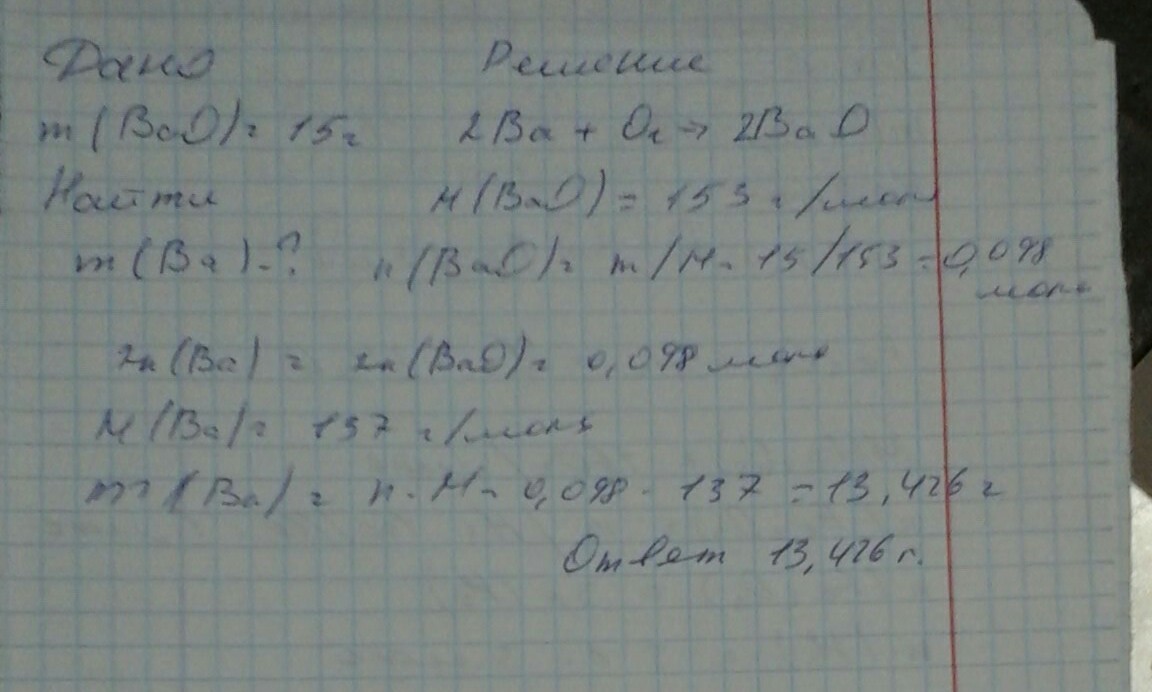 Дано Решение
m(BaO)= 15г 2Ba + O₂ → 2BaO
Найти M(BaO) = 153 г/моль
m(Ba)-? n(BaO)= m/M = 15/153 = 0,098
моль
2n(Ba) = 2n(BaO)= 0,098 моль
M(Ba)= 137 г/моль
m(Ba)= n·M = 0,098 · 137 = 13,426 г
Ответ 13,426 г.